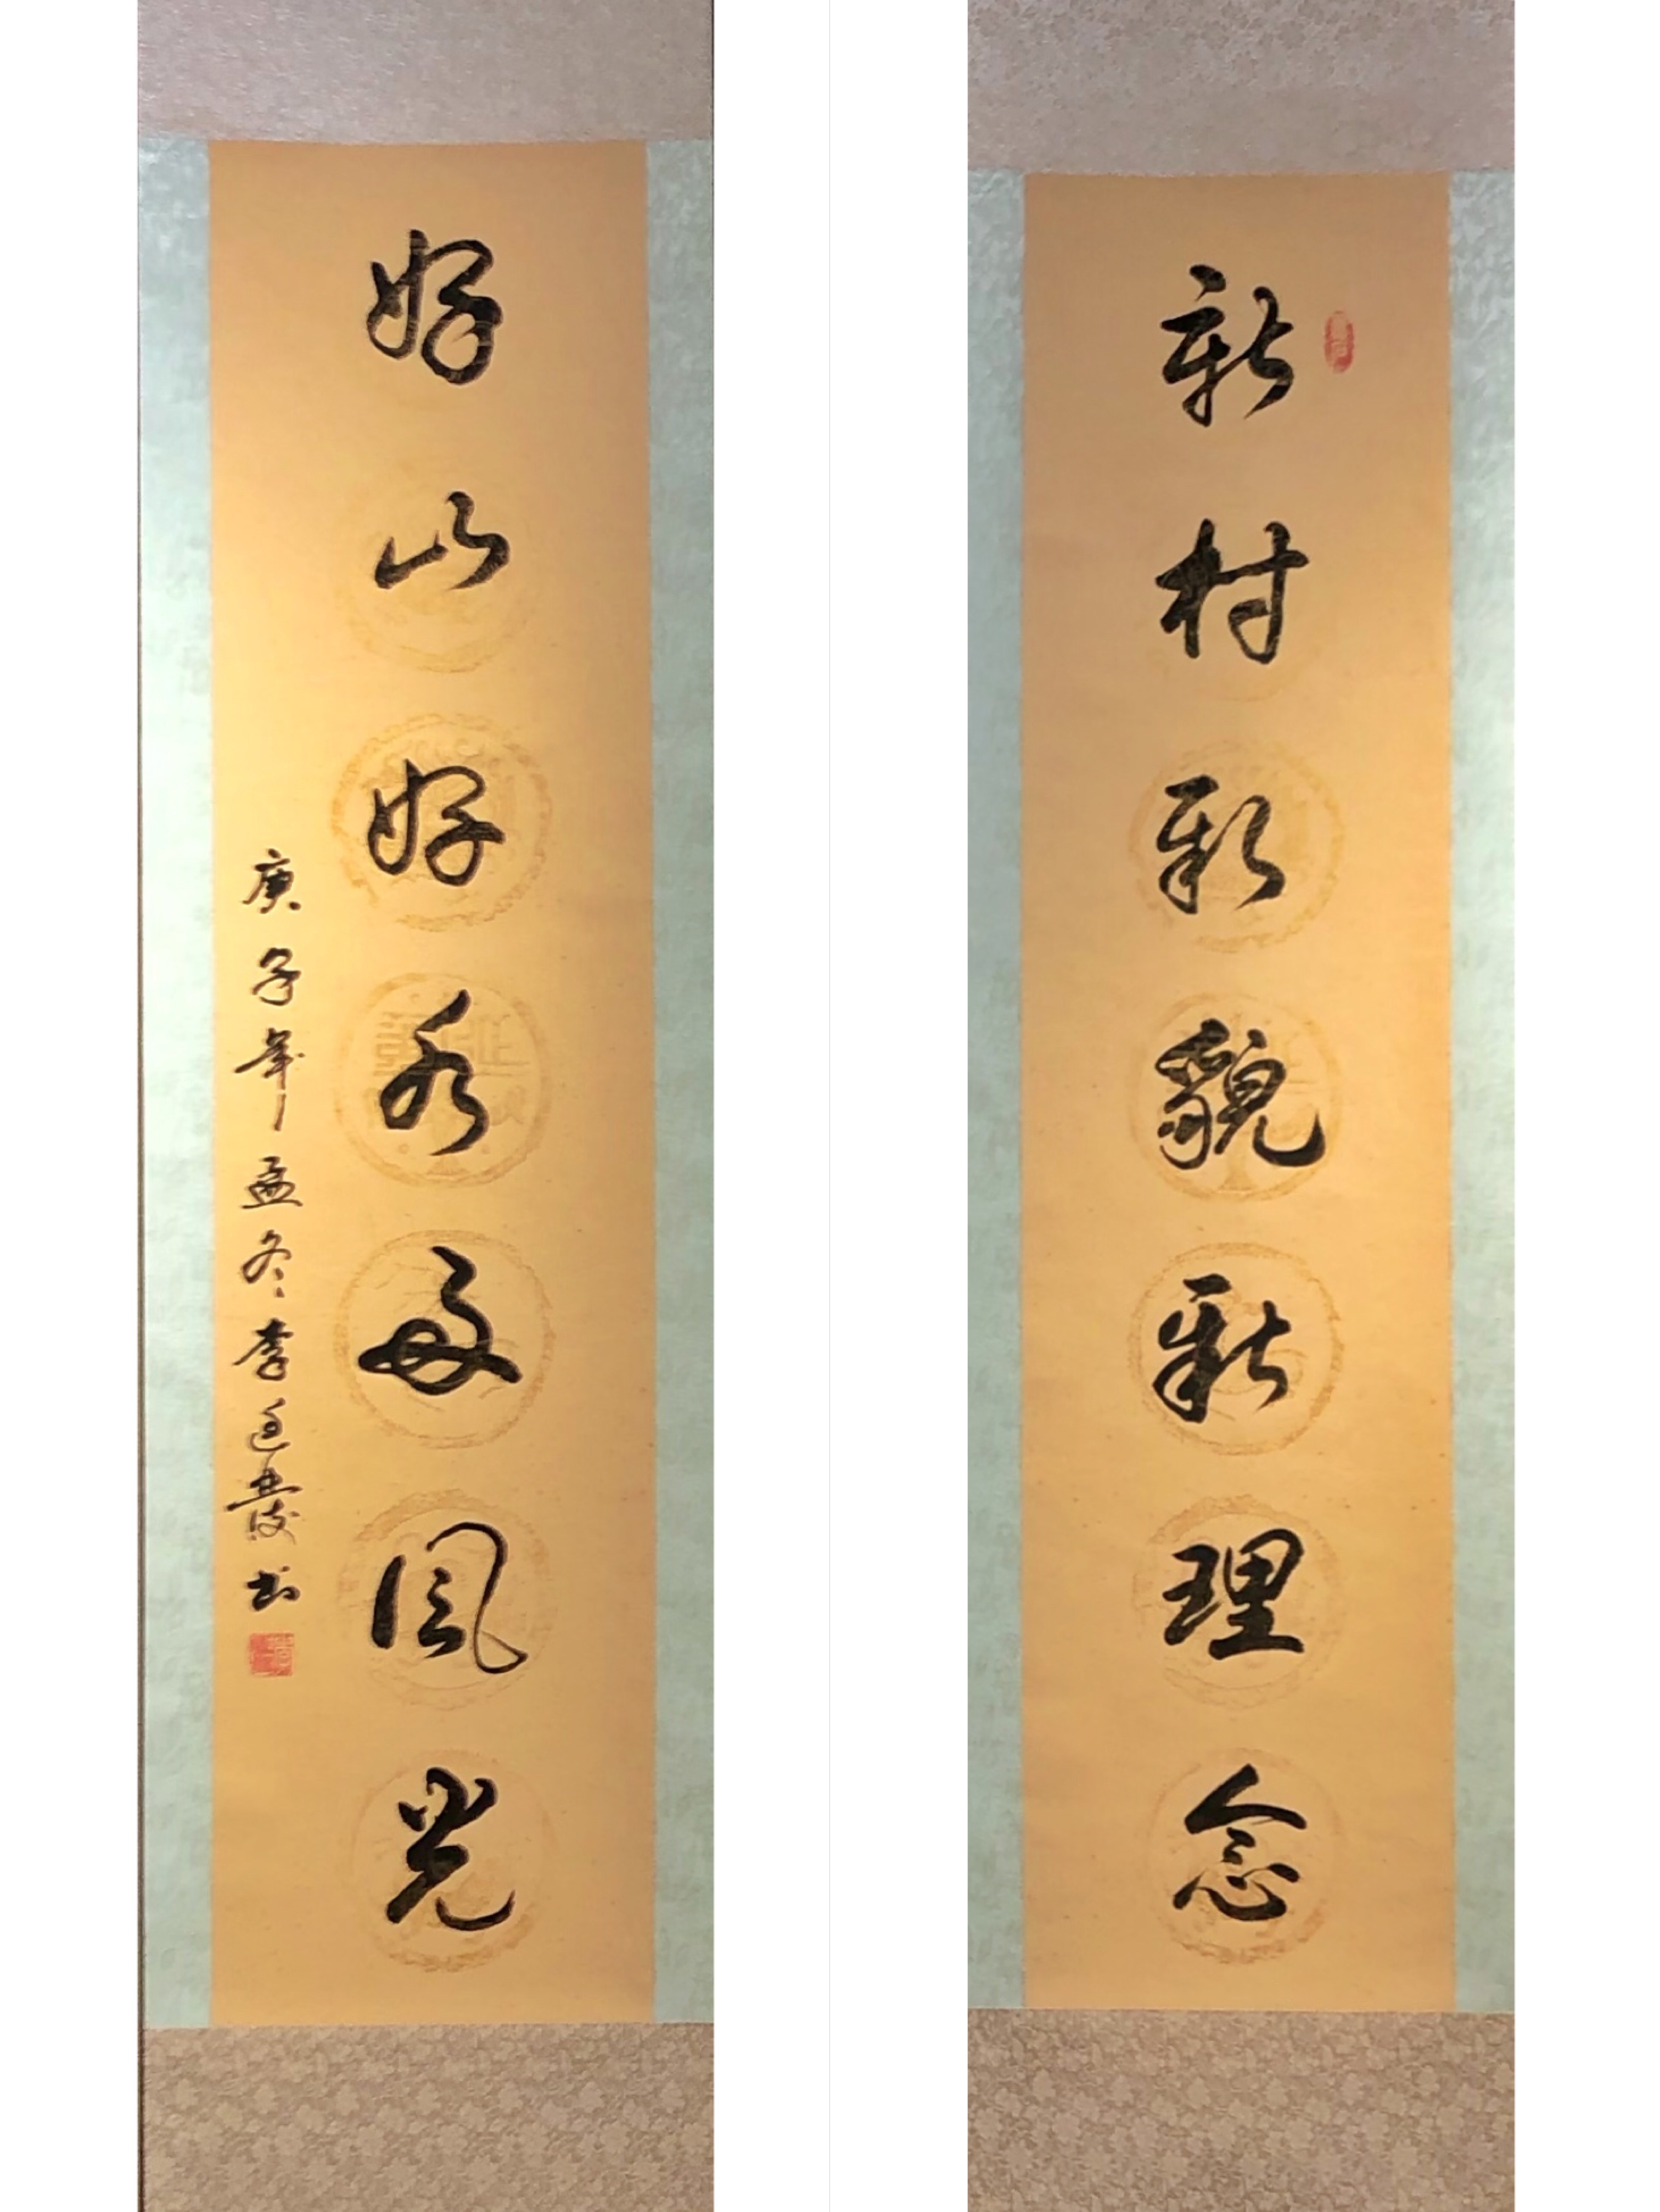 新村新貌新理念
好山好水好風光
庚子年孟冬李廷发书